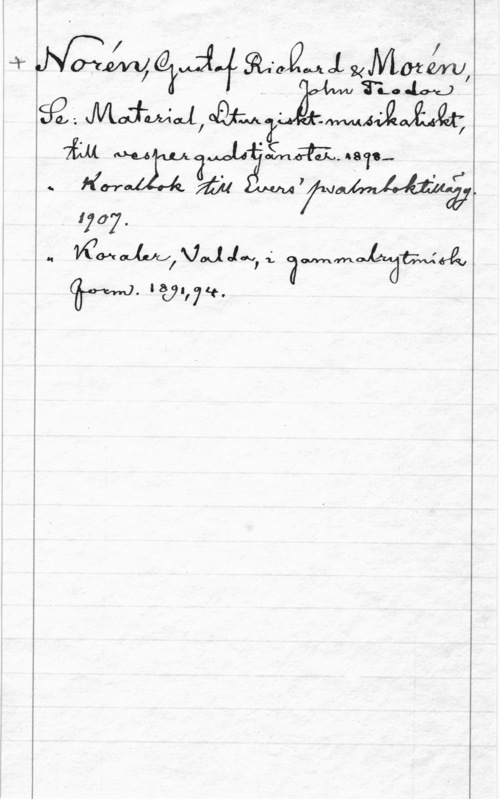 + Norén, Gustaf Richard & Morén,
John Teodor
Se: Material, Liturgiskt-musikaliskt,
till vespergudstjänster. 1898–
" Koralbok till Evers' psalmbokstillägg.
1907.
" Koraler, Valda, i gammalrytmisk
form. 1891,94.